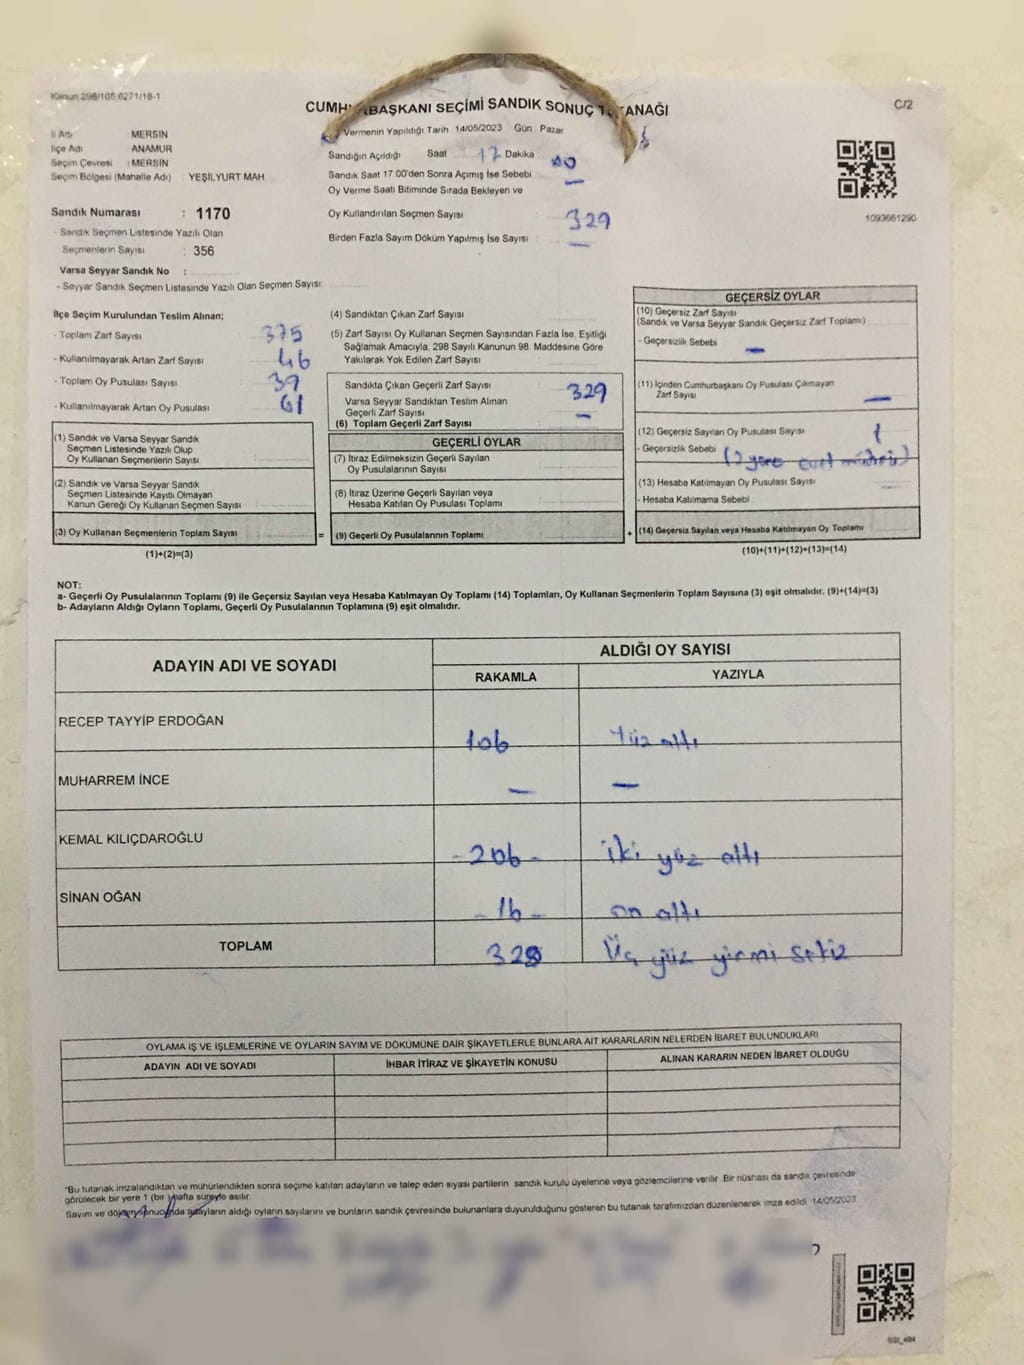 Kanun 298/105,6271/18-1
C/2
CUMHURBAŞKANI SEÇİMİ SANDIK SONUÇ TUTANAĞI
İl Adı MERSİN
İlçe Adı ANAMUR
Seçim Çevresi : MERSİN
Seçim Bölgesi (Mahalle Adı) YEŞİLYURT MAH.
Sandık Numarası : 1170
- Sandık Seçmen Listesinde Yazılı Olan
Seçmenlerin Sayısı : 356
Varsa Seyyar Sandık No :
- Seyyar Sandık Seçmen Listesinde Yazılı Olan Seçmen Sayısı:
Vermenin Yapıldığı Tarih 14/05/2023 Gün Pazar
Sandığın Açıldığı Saat 17 Dakika 00
Sandık Saat 17:00'den Sonra Açımış İse Sebebi —
Oy Verme Saati Bitiminde Sırada Bekleyen ve
Oy Kullandırılan Seçmen Sayısı 329
Birden Fazla Sayım Döküm Yapılmış İse Sayısı —
1093661290
İlçe Seçim Kurulundan Teslim Alınan;
- Toplam Zarf Sayısı 375
- Kullanılmayarak Artan Zarf Sayısı 46
- Toplam Oy Pusulası Sayısı 39
- Kullanılmayarak Artan Oy Pusulası 61
(1) Sandık ve Varsa Seyyar Sandık
Seçmen Listesinde Yazılı Olup
Oy Kullanan Seçmenlerin Sayısı
(2) Sandık ve Varsa Seyyar Sandık
Seçmen Listesinde Kayıtlı Olmayan
Kanun Gereği Oy Kullanan Seçmen Sayısı
(3) Oy Kullanan Seçmenlerin Toplam Sayısı =
(1)+(2)=(3)
(4) Sandıktan Çıkan Zarf Sayısı
(5) Zarf Sayısı Oy Kullanan Seçmen Sayısından Fazla İse, Eşitliği
Sağlamak Amacıyla, 298 Sayılı Kanunun 98. Maddesine Göre
Yakılarak Yok Edilen Zarf Sayısı
Sandıkta Çıkan Geçerli Zarf Sayısı 329
Varsa Seyyar Sandıktan Teslim Alınan
Geçerli Zarf Sayısı —
(6) Toplam Geçerli Zarf Sayısı
GEÇERLİ OYLAR
(7) İtiraz Edilmeksizin Geçerli Sayılan
Oy Pusulalarının Sayısı
(8) İtiraz Üzerine Geçerli Sayılan veya
Hesaba Katılan Oy Pusulası Toplamı
(9) Geçerli Oy Pusulalarının Toplamı +
GEÇERSİZ OYLAR
(10) Geçersiz Zarf Sayısı
(Sandık ve Varsa Seyyar Sandık Geçersiz Zarf Toplamı)
- Geçersizlik Sebebi —
(11) İçinden Cumhurbaşkanı Oy Pusulası Çıkmayan
Zarf Sayısı —
(12) Geçersiz Sayılan Oy Pusulası Sayısı 1
- Geçersizlik Sebebi (2 yere
(13) Hesaba Katılmayan Oy Pusulası Sayısı
- Hesaba Katılmama Sebebi
(14) Geçersiz Sayılan veya Hesaba Katılmayan Oy Toplamı
(10)+(11)+(12)+(13)=(14)
NOT:
a- Geçerli Oy Pusulalarının Toplamı (9) ile Geçersiz Sayılan veya Hesaba Katılmayan Oy Toplamı (14) Toplamları, Oy Kullanan Seçmenlerin Toplam Sayısına (3) eşit olmalıdır. (9)+(14)=(3)
b- Adayların Aldığı Oyların Toplamı, Geçerli Oy Pusulalarının Toplamına (9) eşit olmalıdır.
ADAYIN ADI VE SOYADI
ALDIĞI OY SAYISI
RAKAMLA YAZIYLA
RECEP TAYYİP ERDOĞAN 106 Yüz altı
MUHARREM İNCE — —
KEMAL KILIÇDAROĞLU -206- iki yüz altı
SİNAN OĞAN -16- on altı
TOPLAM 328 Üç yüz yirmi sekiz
OYLAMA İŞ VE İŞLEMLERİNE VE OYLARIN SAYIM VE DÖKÜMÜNE DAİR ŞİKAYETLERLE BUNLARA AİT KARARLARIN NELERDEN İBARET BULUNDUKLARI
ADAYIN ADI VE SOYADI İHBAR İTİRAZ VE ŞİKAYETİN KONUSU ALINAN KARARIN NEDEN İBARET OLDUĞU
*Bu tutanak imzalandıktan ve mühürlendikten sonra seçime katılan adayların ve talep eden siyasi partilerin sandık kurulu üyelerine veya gözlemcilerine verilir. Bir nüshası da sandık çevresinde
görülecek bir yere 1 (bir) hafta süreyle asılır.
Sayım ve döküm sonucunda adayların aldığı oyların sayılarını ve bunların sandık çevresinde bulunanlara duyurulduğunu gösteren bu tutanak tarafımızdan düzenlenerek imza edildi. 14/05/2023